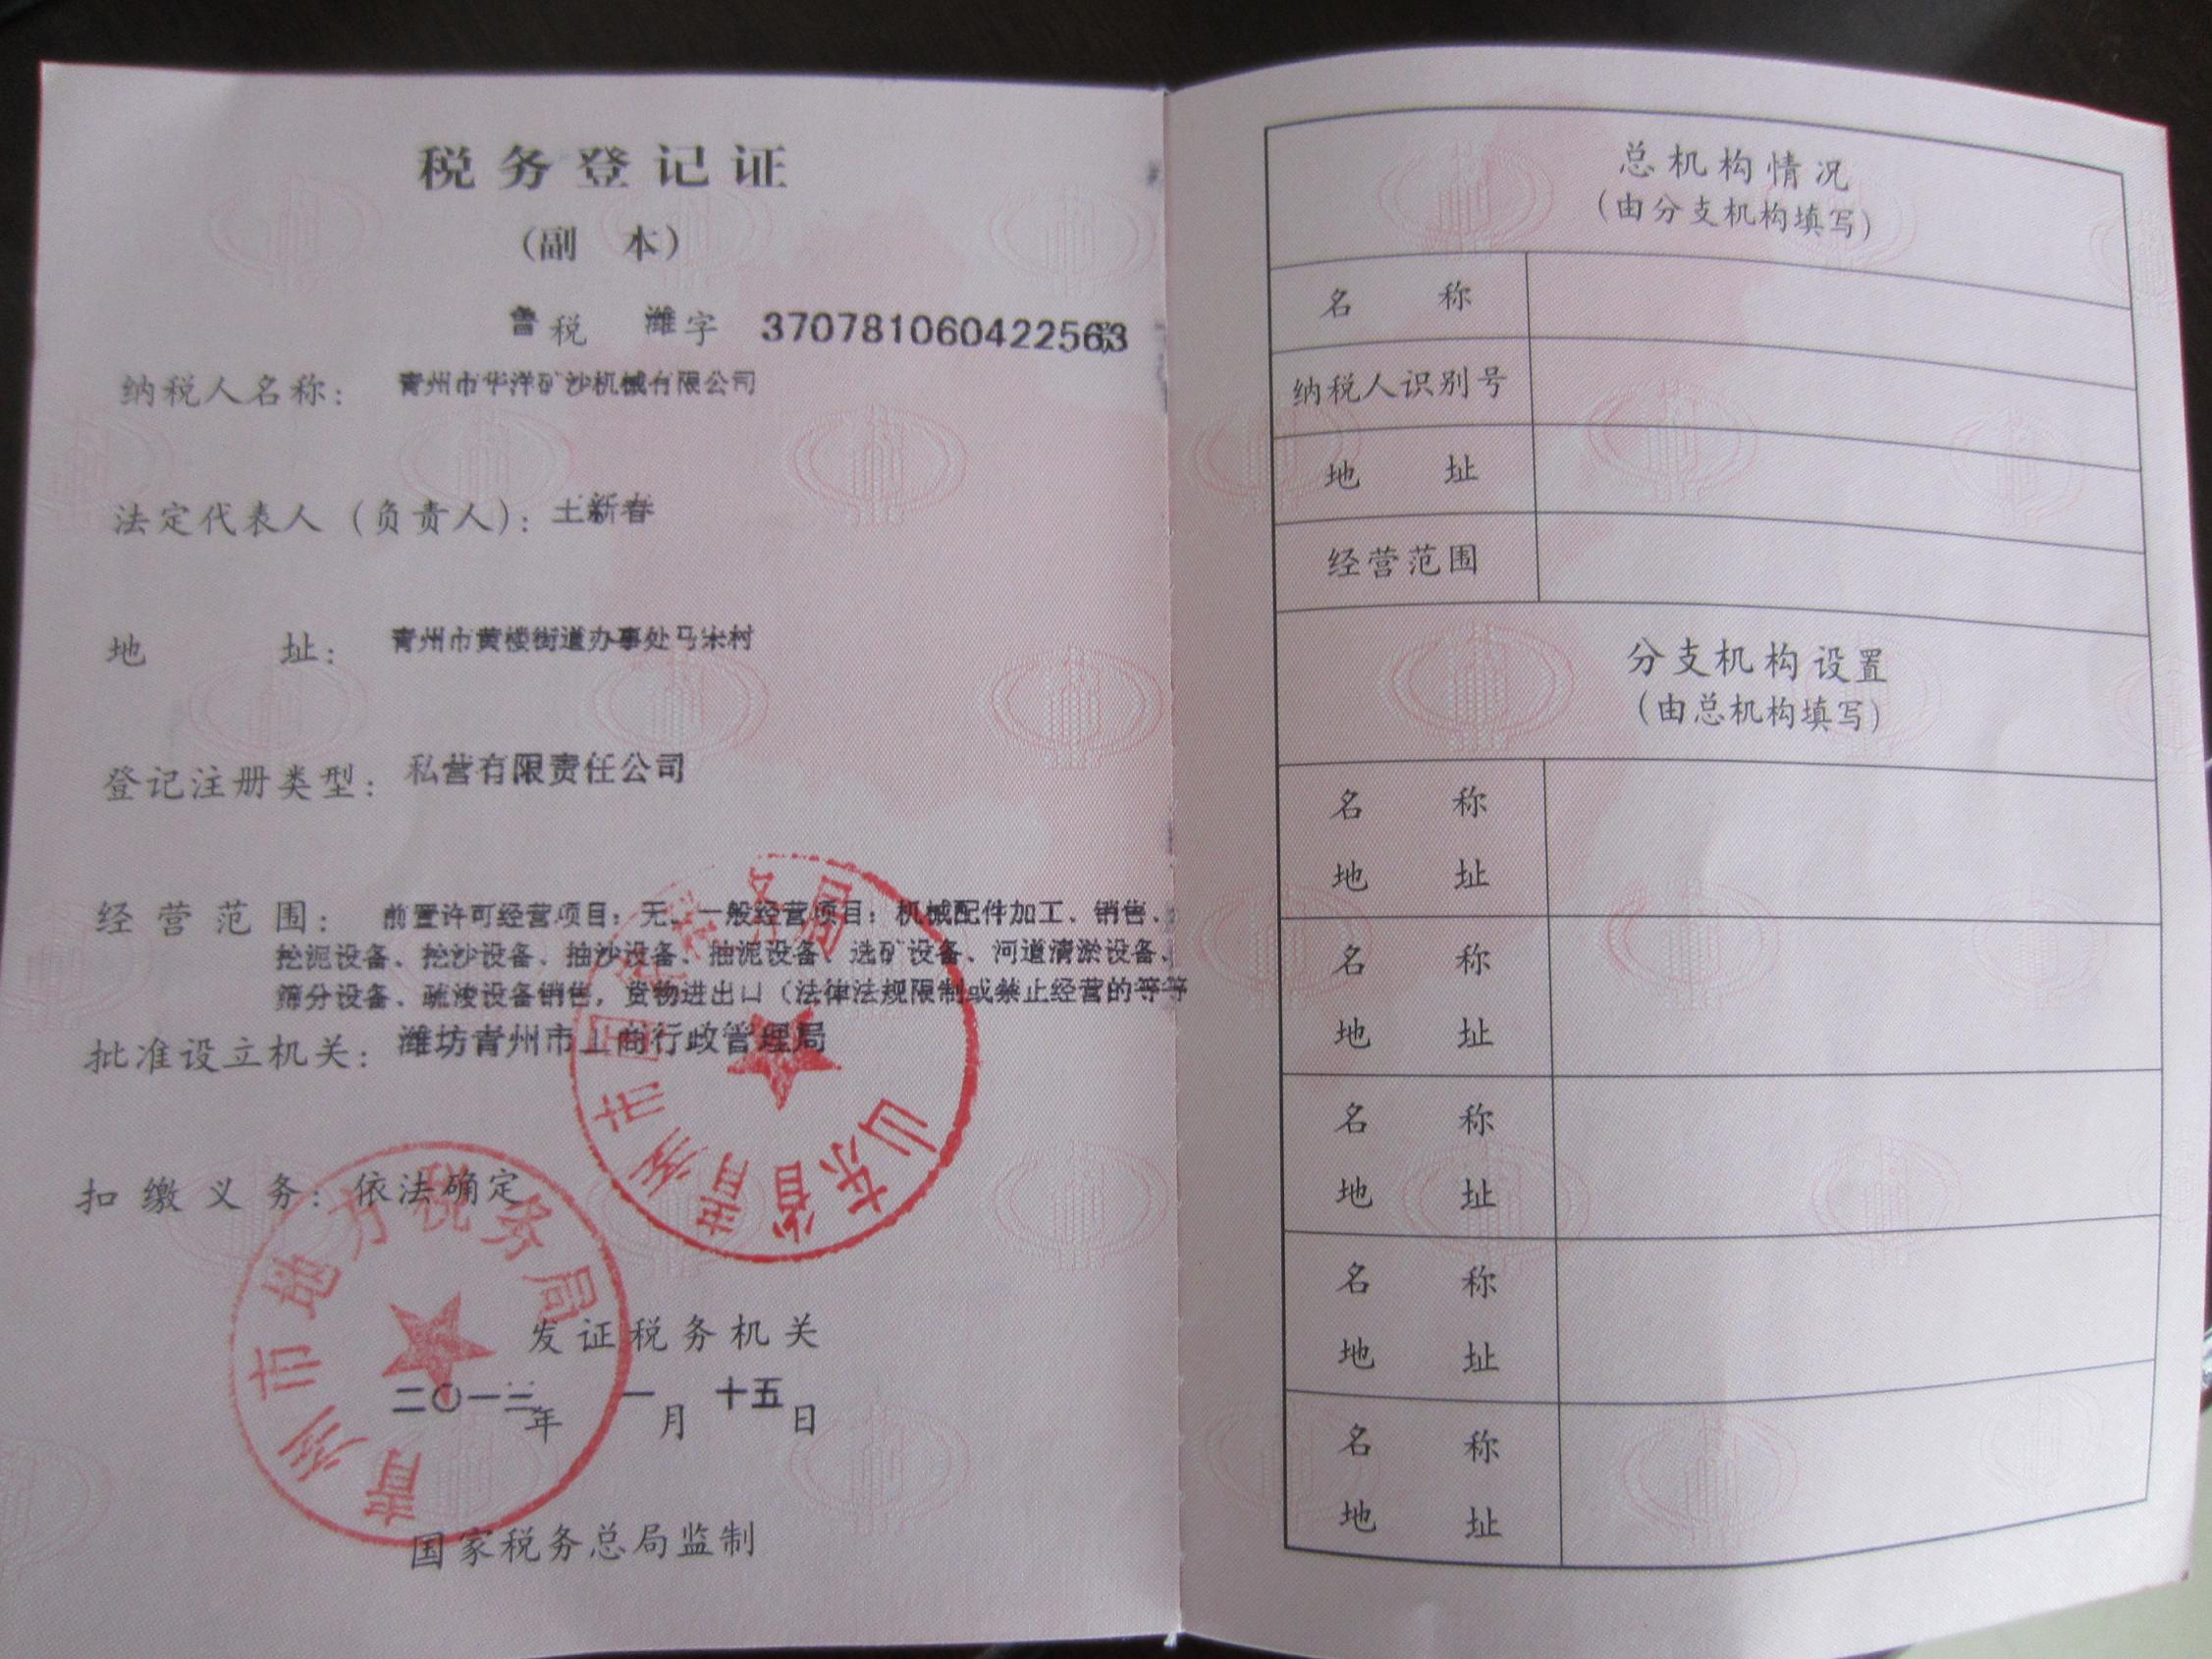 税务登记证
(副 本)
鲁税 潍字 370781060422563号
纳税人名称: 青州市华洋矿沙机械有限公司
法定代表人(负责人): 王新春
地 址: 青州市黄楼街道办事处马宋村
登记注册类型: 私营有限责任公司
经营范围: 前置许可经营项目:无、一般经营项目:机械配件加工、销售、
挖泥设备、挖沙设备、抽沙设备、抽泥设备、选矿设备、河道清淤设备、
筛分设备、疏浚设备销售,货物进出口(法律法规限制或禁止经营的等等
批准设立机关: 潍坊青州市工商行政管理局
扣缴义务: 依法确定
山东省青州市国家税务局
青州市地方税务局
发证税务机关
二〇一三年 一月 十五日
国家税务总局监制
总机构情况
(由分支机构填写)
名 称
纳税人识别号
地 址
经营范围
分支机构设置
(由总机构填写)
名 称
地 址
名 称
地 址
名 称
地 址
名 称
地 址
名 称
地 址